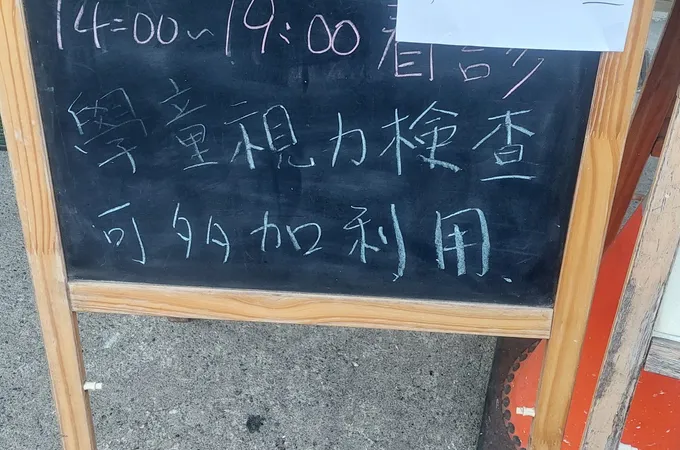 14:00~19:00看診
學童視力檢查
可多加利用